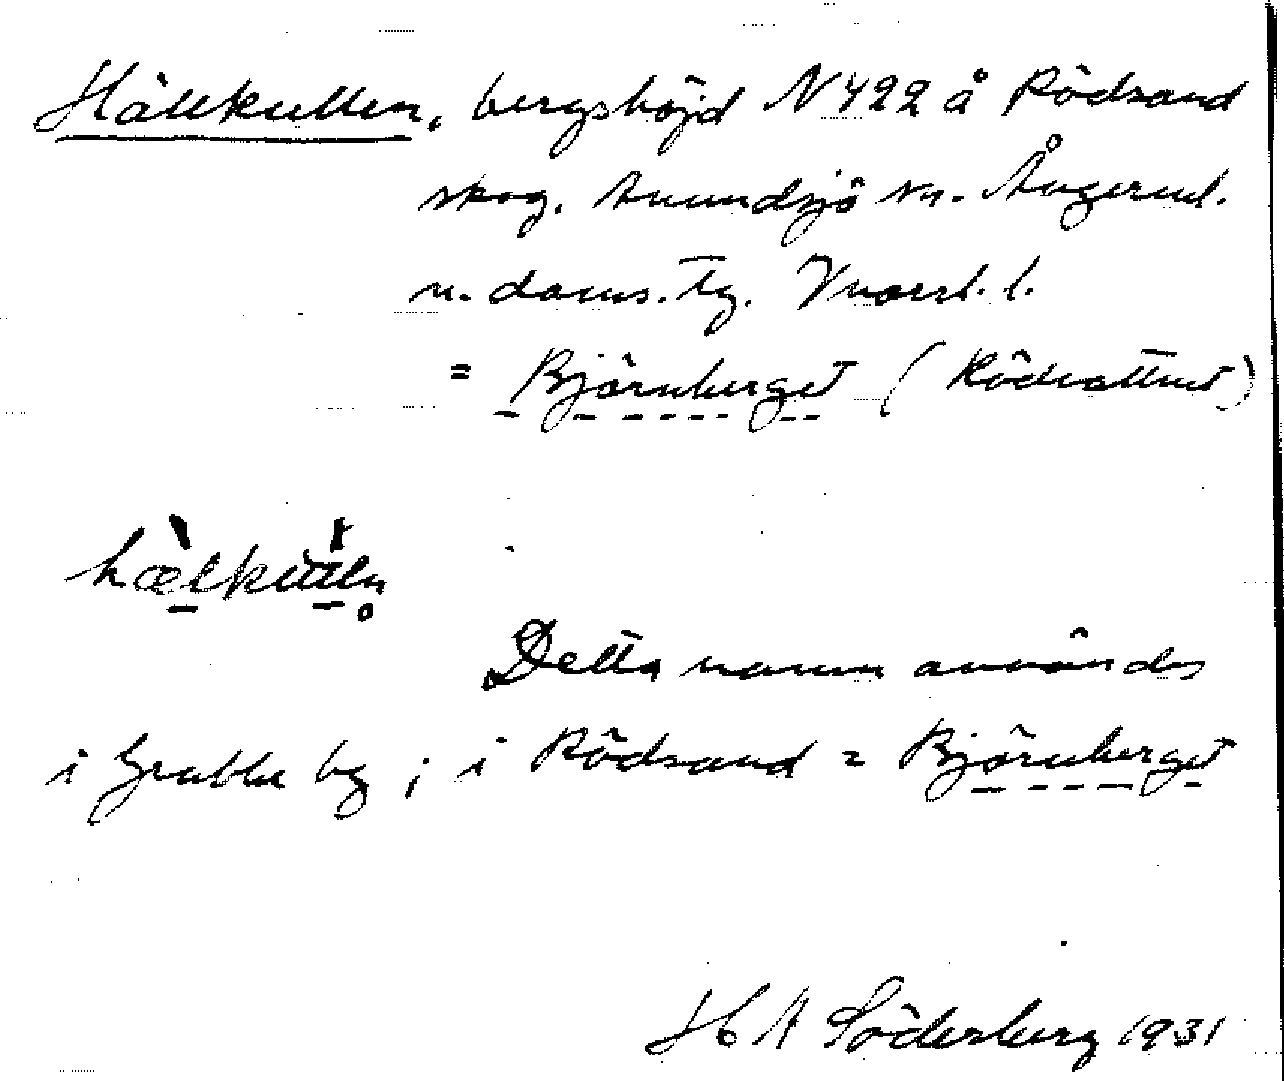 Hällkullen, bergshöjd N 422 å Rödsand
skog. Anundsjö sn. Ångerml.
n. doms. Tg. Vnorrl. l.
= Björnberget (Rödvattnet)
hælkulln̥
Detta namn användes
i Grubbe by; i Rödsand = Björnberget
H A Söderberg 1931